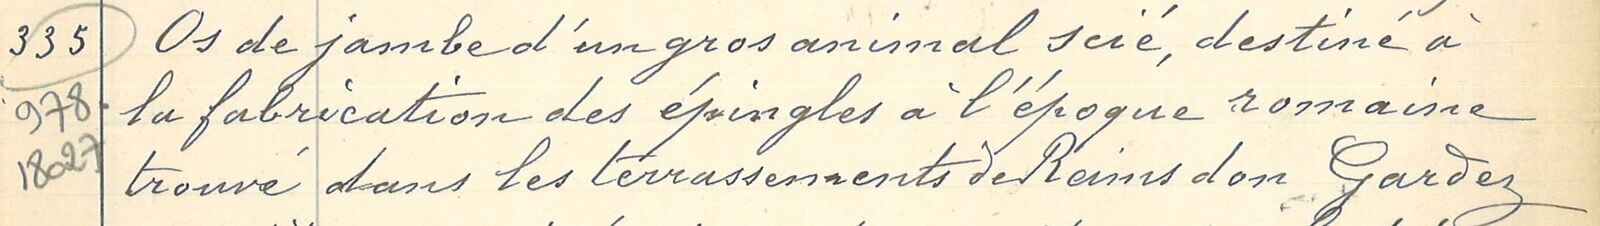 335 Os de jambe d'un gros animal scié, destiné à
978. la fabrication des épingles à l'époque romaine
18027 trouvé dans les terrassements de Reims don Gardez